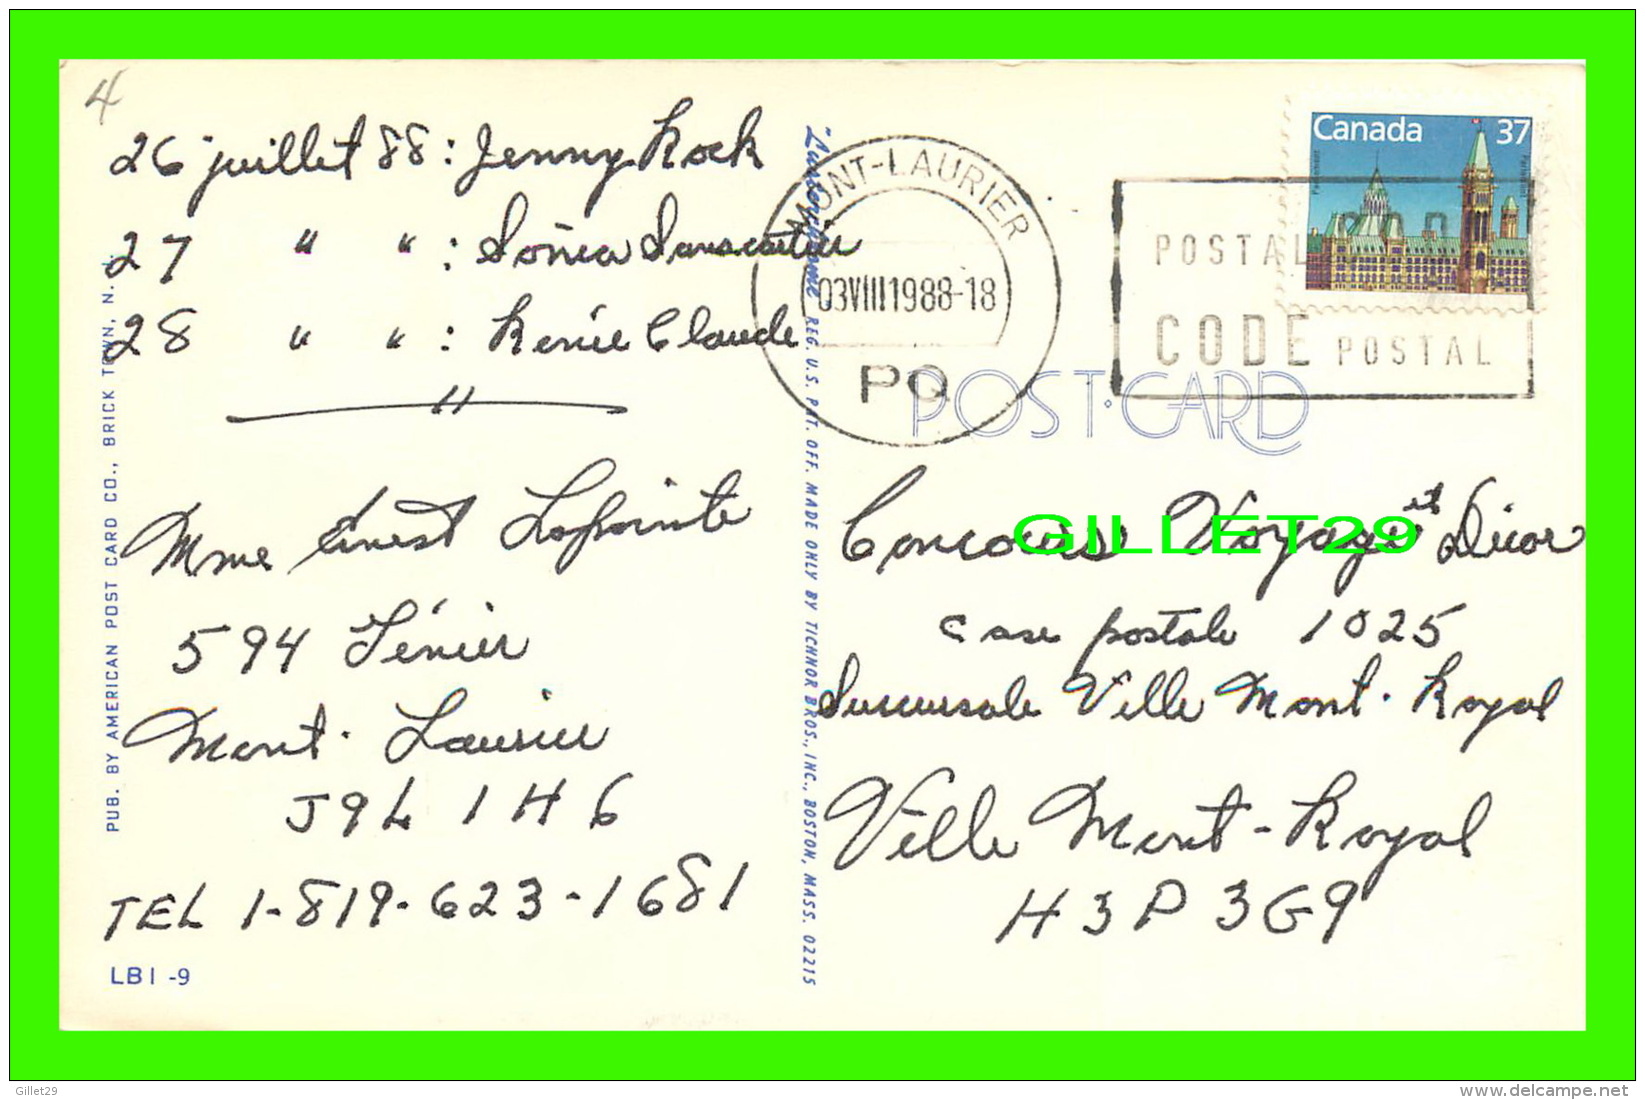 4
26 juillet 88 : Jenny Rock
27 " " : Sonia Sanscartier
28 " " : Renée Claude
Mme Ernest Lapointe
594 Fénier
Mont-Laurier
J9L 1H6
TEL 1-819-623-1681
LB1-9
PUB. BY AMERICAN POST CARD CO., BRICK TOWN, N. J.
REG. U.S. PAT. OFF. MADE ONLY BY TICHNOR BROS., INC., BOSTON, MASS. 02215
MONT-LAURIER
03VIII1988-18
PQ
Canada 37
Parliament
POSTAL
CODE POSTAL
POST CARD
Concours Voyage et Décor
GILLET29
case postale 1025
Succursale Ville Mont-Royal
Ville Mont-Royal
H3P 3G9
Gillet29
www.delcampe.net